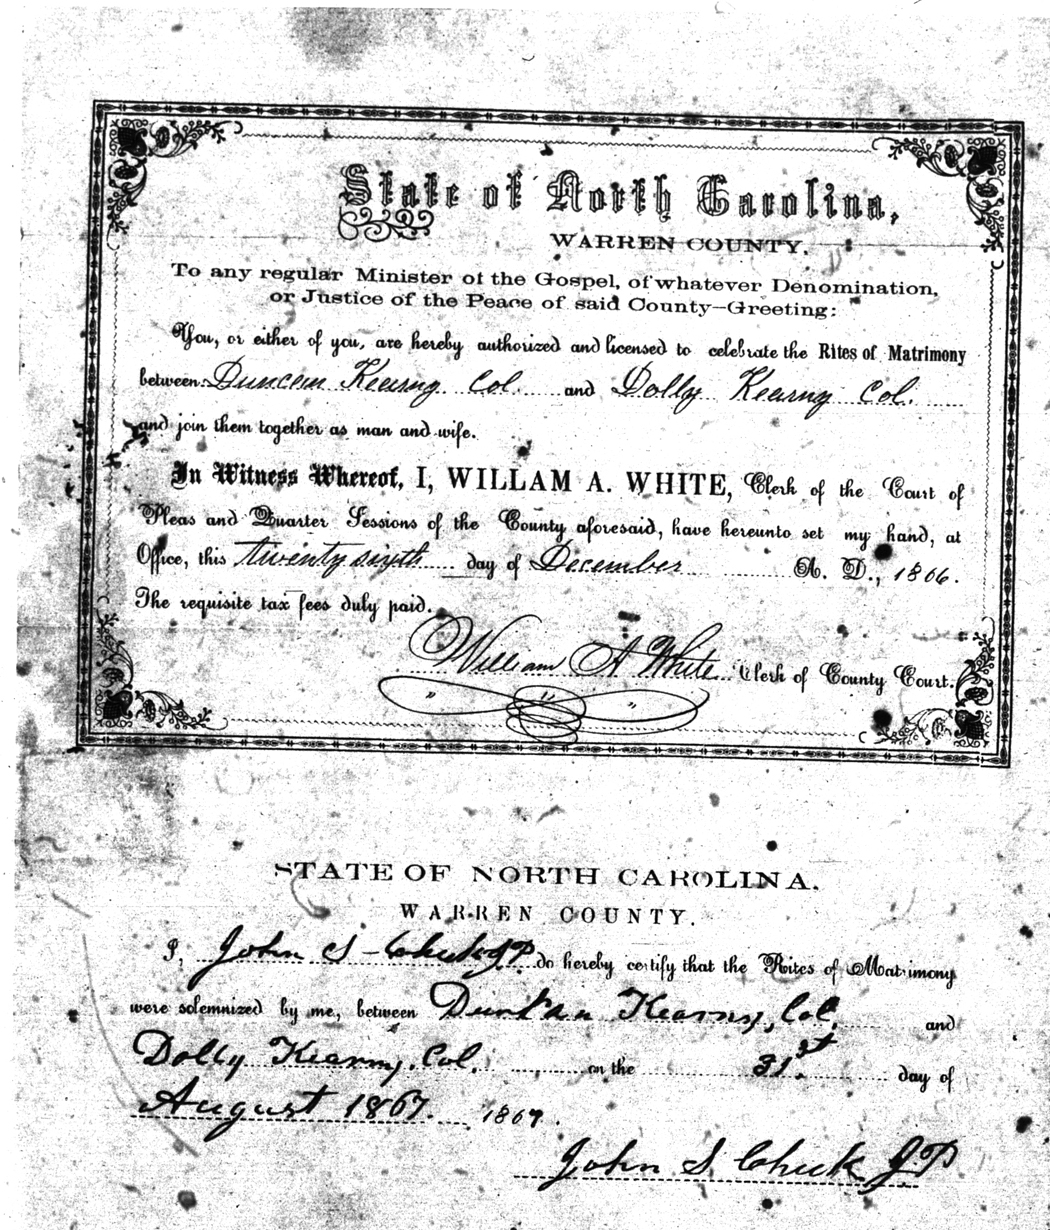 State of North Carolina,
WARREN COUNTY.
To any regular Minister of the Gospel, of whatever Denomination,
or Justice of the Peace of said County—Greeting:
You, or either of you, are hereby authorized and licensed to celebrate the Rites of Matrimony
between Duncan Kearny Col. and Dolly Kearny Col.
and join them together as man and wife.
In Witness Whereof, I, WILLAM A. WHITE, Clerk of the Court of
Pleas and Quarter Sessions of the County aforesaid, have hereunto set my hand, at
Office, this twenty sixth day of December A. D., 1866.
The requisite tax fees duly paid.
William A White Clerk of County Court.
STATE OF NORTH CAROLINA.
WARREN COUNTY.
I, John S Cheek JP do hereby certify that the Rites of Matrimony
were solemnized by me, between Dunkan Kearny, Col. and
Dolly Kearny. Col. on the 31.st day of
August 1867. 1867.
John S Cheek J.P